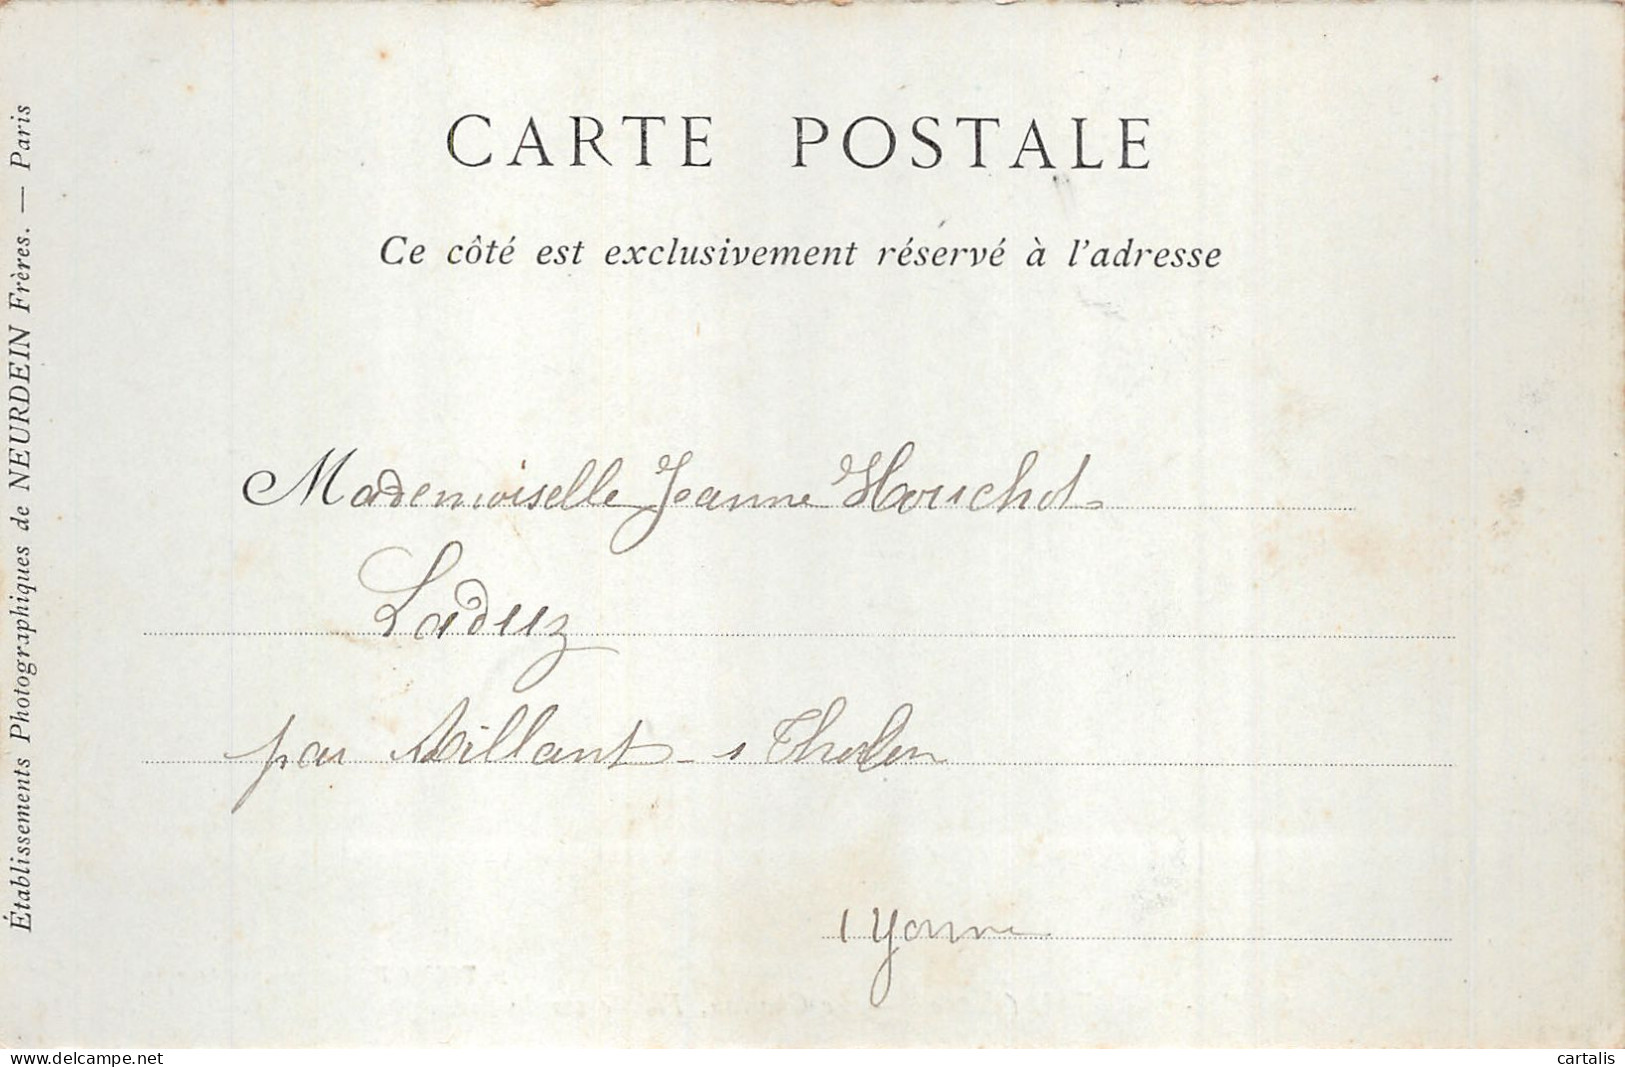 CARTE POSTALE
Ce côté est exclusivement réservé à l'adresse
Mademoiselle Jeanne Houchot
Laduz
par Aillant - s Tholon
Yonne
Établissements Photographiques de NEURDEIN Frères. — Paris
delcampe.net
cartalis